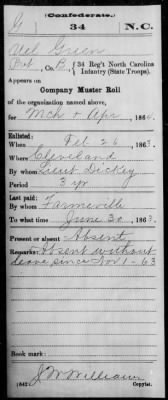 (Confederate.)
G 34 N.C.
Green
Pvt, Co. B, 34 Reg't North Carolina
Infantry (State Troops).
Appears on
Company Muster Roll
of the organization named above,
for Mch & Apr, 1864.
Enlisted:
When Feb 26, 1863.
Where Cleveland
By whom Lieut Dickey
Period 3 yr
Last paid:
By whom Farmeville
To what time June 30, 1863.
Present or absent Absent
Remarks: Absent without
leave since Nov 1-63
Book mark:
J W William
(642)